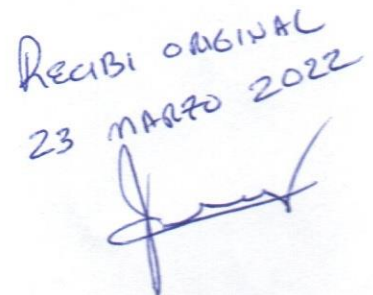 RECIBI ORIGINAL
23 MARZO 2022